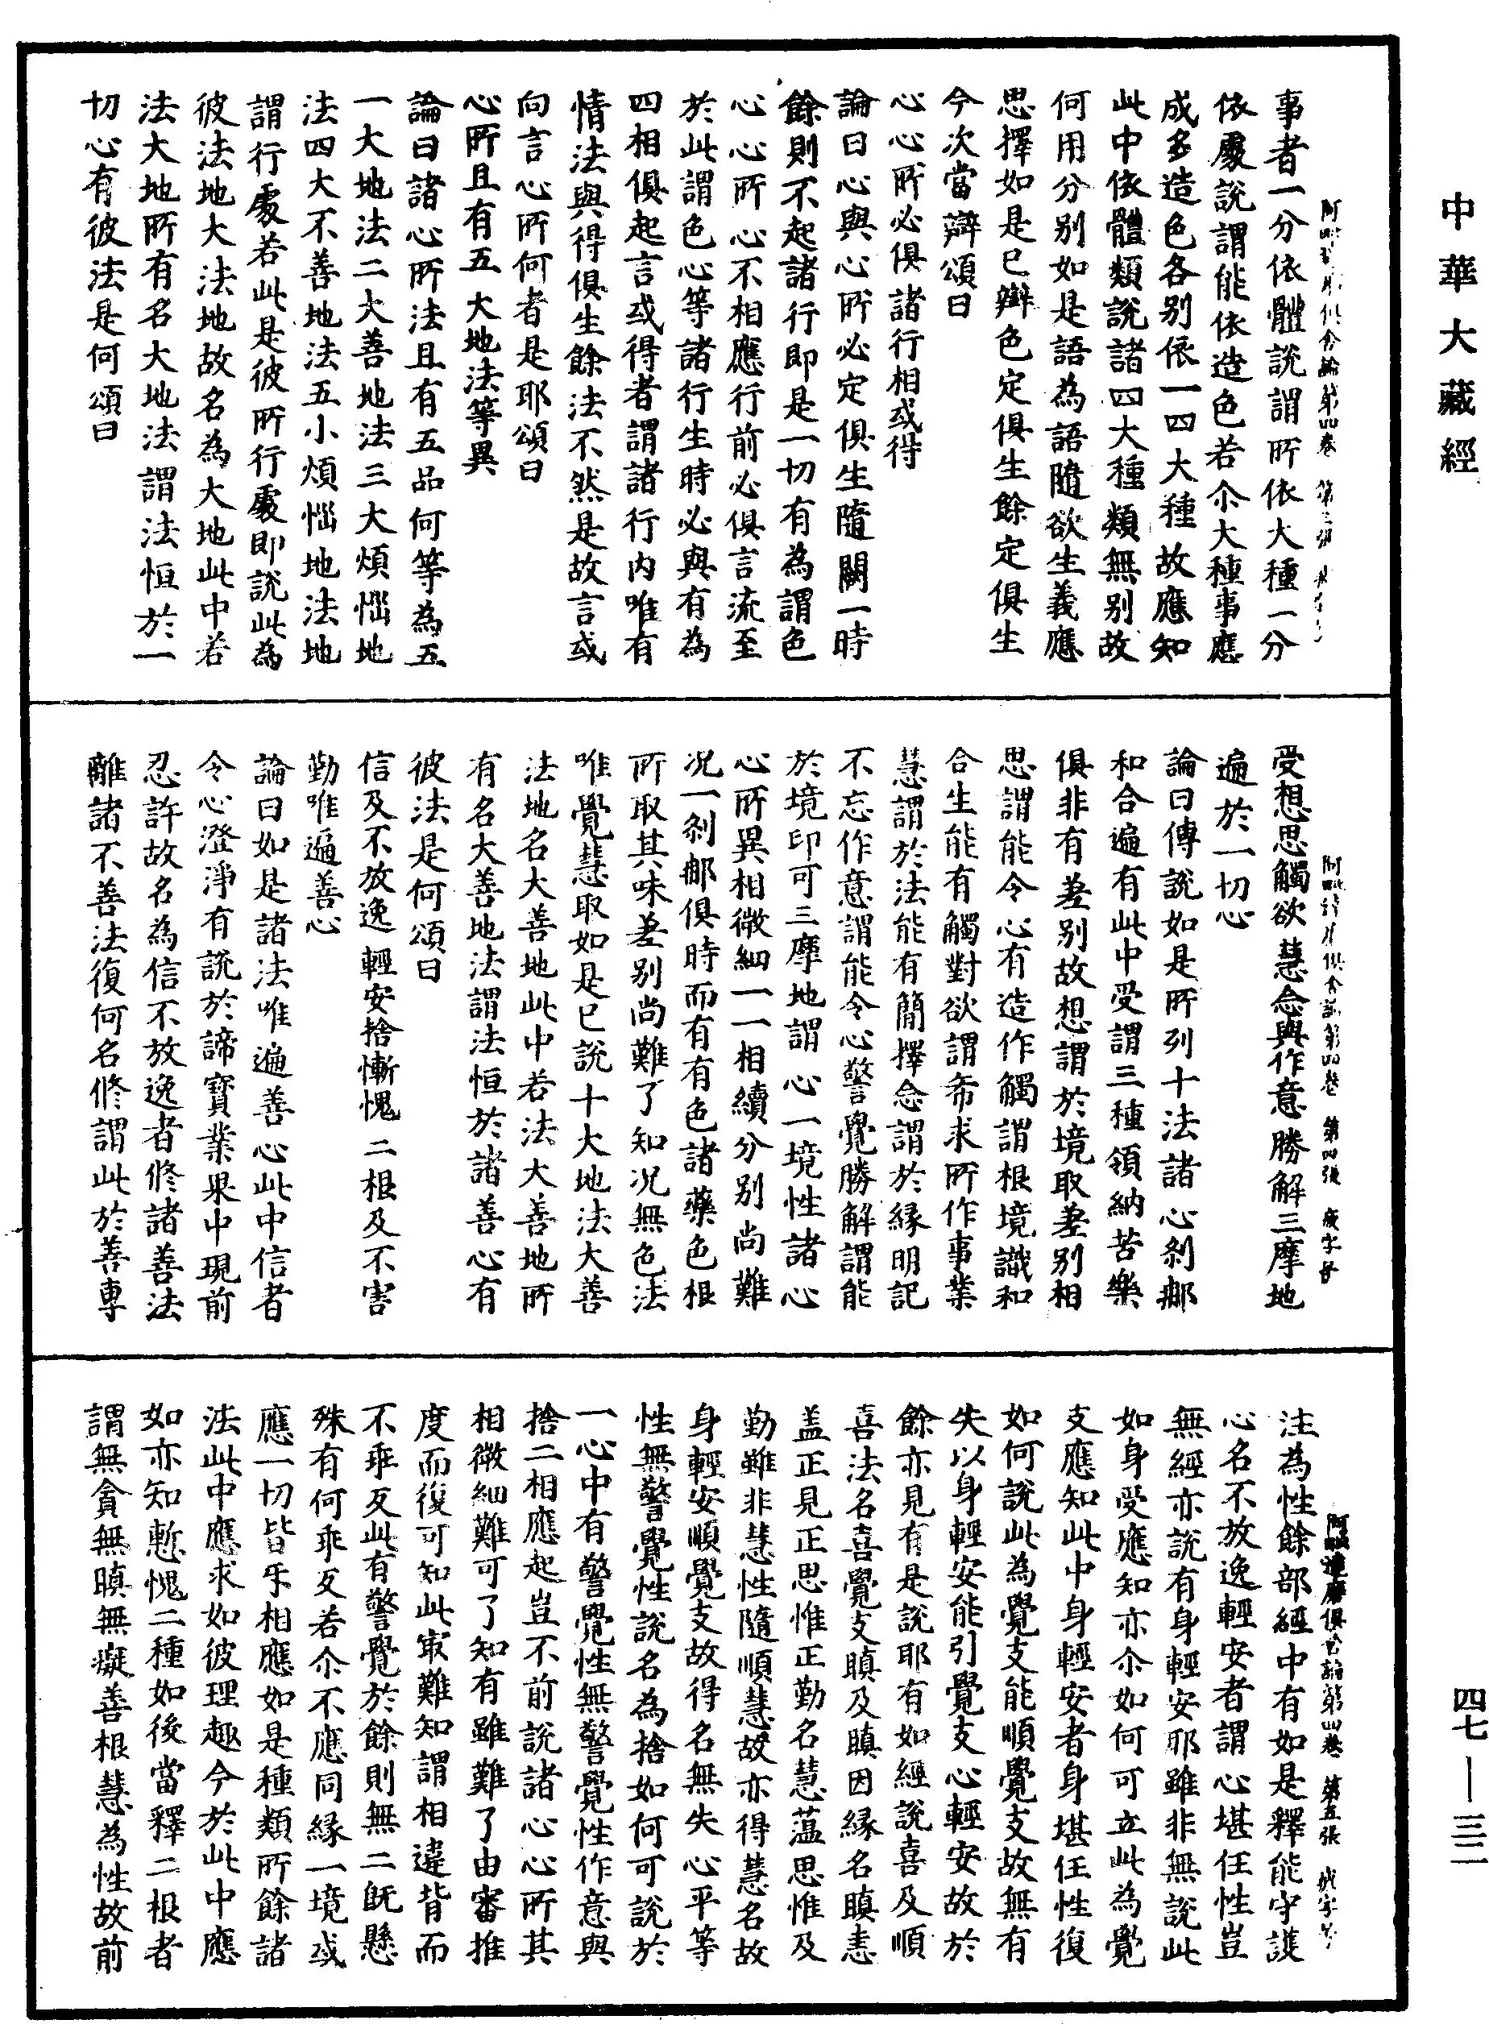 中華大藏經
事者一分依體說謂所依大種一分
依處說謂能依造色若尒大種事應
成多造色各别依一四大種故應知
此中依體類說諸四大種類無别故
何用分别如是語為語隨欲生義應
思擇如是已辯色定俱生餘定俱生
今次當辯頌曰
心心所必俱諸行相或得
論曰心與心所必定俱生隨闕一時
餘則不起諸行即是一切有為謂色
心心所心不相應行前必俱言流至
於此謂色心等諸行生時必與有為
四相俱起言或得者謂諸行内唯有
情法與得俱生餘法不然是故言或
向言心所何者是耶頌曰
心所且有五大地法等異
論曰諸心所法且有五品何等為五
一大地法二大善地法三大煩惱地
法四大不善地法五小煩惱地法地
謂行處若此是彼所行處即說此為
彼法地大法地故名為大地此中若
法大地所有名大地法謂法恒於一
切心有彼法是何頌曰
受想思觸欲慧念與作意勝解三摩地
遍於一切心
論曰傳說如是所列十法諸心剎那
和合遍有此中受謂三種領納苦樂
俱非有差别故想謂於境取差别相
思謂能令心有造作觸謂根境識和
合生能有觸對欲謂希求所作事業
慧謂於法能有簡擇念謂於緣明記
不忘作意謂能令心警覺勝解謂能
於境印可三摩地謂心一境性諸心
心所異相微細一一相續分别尚難
况一剎那俱時而有有色諸藥色根
所取其味差别尚難了知况無色法
唯覺慧取如是已說十大地法大善
法地名大善地此中若法大善地所
有名大善地法謂法恒於諸善心有
彼法是何頌曰
信及不放逸輕安捨慚愧二根及不害
勤唯遍善心
論曰如是諸法唯遍善心此中信者
令心澄淨有說於諦寶業果中現前
忍許故名為信不放逸者修諸善法
離諸不善法復何名修謂此於善專
注為性餘部經中有如是釋能守護
心名不放逸輕安者謂心堪任性豈
無經亦說有身輕安耶雖非無說此
如身受應知亦尒如何可立此為覺
支應知此中身輕安者身堪任性復
如何說此為覺支能順覺支故無有
失以身輕安能引覺支心輕安故於
餘亦見有是說耶有如經說喜及順
喜法名喜覺支瞋及瞋因緣名瞋恚
盖正見正思惟正勤名慧蘊思惟及
勤雖非慧性隨順慧故亦得慧名故
身輕安順覺支故得名無失心平等
性無警覺性說名為捨如何可說於
一心中有警覺性無警覺性作意與
捨二相應起豈不前說諸心心所其
相微細難可了知有雖難了由審推
度而復可知此最難知謂相違背而
不乖反此有警覺於餘則無二既懸
殊有何乖反若尒不應同緣一境或
應一切皆互相應如是種類所餘諸
法此中應求如彼理趣今於此中應
如亦知慙愧二種如後當釋二根者
謂無貪無瞋無癡善根慧為性故前
四七—三二